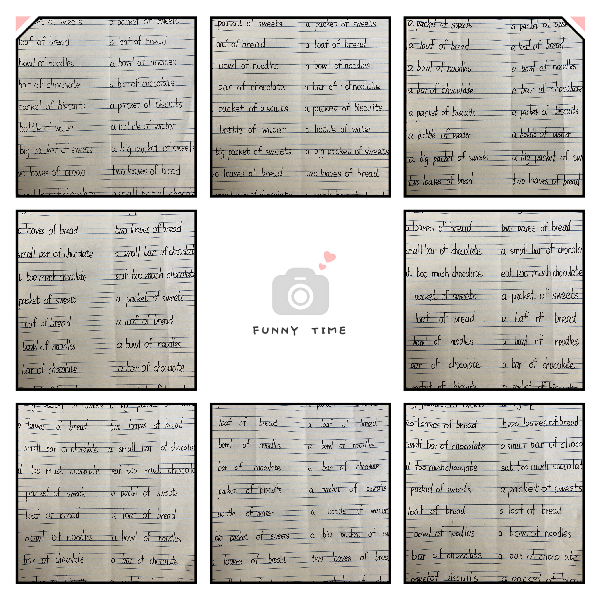 loaf of bread a loaf of bread
bowl of noodles
bar of chocolate a bar of chocolate
a packet of biscuits
a bottle of water
a big packet of sweets
two loaves of bread
packet of sweets a packet of sweets
a loaf of bread
bowl of noodles a bowl of noodles
bar of chocolate a bar of chocolate
packet of biscuits a packet of biscuits
bottle of water a bottle of water
big packet of sweets a big packet of sweets
loaves of bread two loaves of bread
a packet of sweets
a loaf of bread a loaf of bread
a bowl of noodles a bowl of noodles
a bar of chocolate a bar of chocolate
a packet of biscuits a packet of biscuits
a bottle of water a bottle of water
a big packet of sweets a big packet of
two loaves of bread two loaves of bread
loaves of bread two loaves of bread
small bar of chocolate a small bar of
too much chocolate eat too much chocolate
packet of sweets a packet of sweets
loaf of bread a loaf of bread
bowl of noodles a bowl of noodles
bar of chocolate a bar of chocolate
FUNNY TIME
loaves of bread two loaves of bread
small bar of chocolate a small bar of
too much chocolate eat too much chocolate
packet of sweets a packet of sweets
loaf of bread a loaf of bread
bowl of noodles a bowl of noodles
bar of chocolate a bar of chocolate
loaves of bread two loaves of bread
small bar of chocolate a small bar of
too much chocolate eat too much
packet of sweets a packet of sweets
loaf of bread a loaf of bread
bowl of noodles a bowl of noodles
bar of chocolate a bar of chocolate
loaf of bread a loaf of bread
bowl of noodles a bowl of noodles
bar of chocolate a bar of chocolate
a packet of
a bottle of
packet of sweets a big packet of
loaves of bread two loaves of
loaves of bread two loaves of bread
small bar of chocolate a small bar of
too much chocolate eat too much
packet of sweets a packet of sweets
loaf of bread a loaf of bread
bowl of noodles a bowl of noodles
bar of chocolate a bar of chocolate